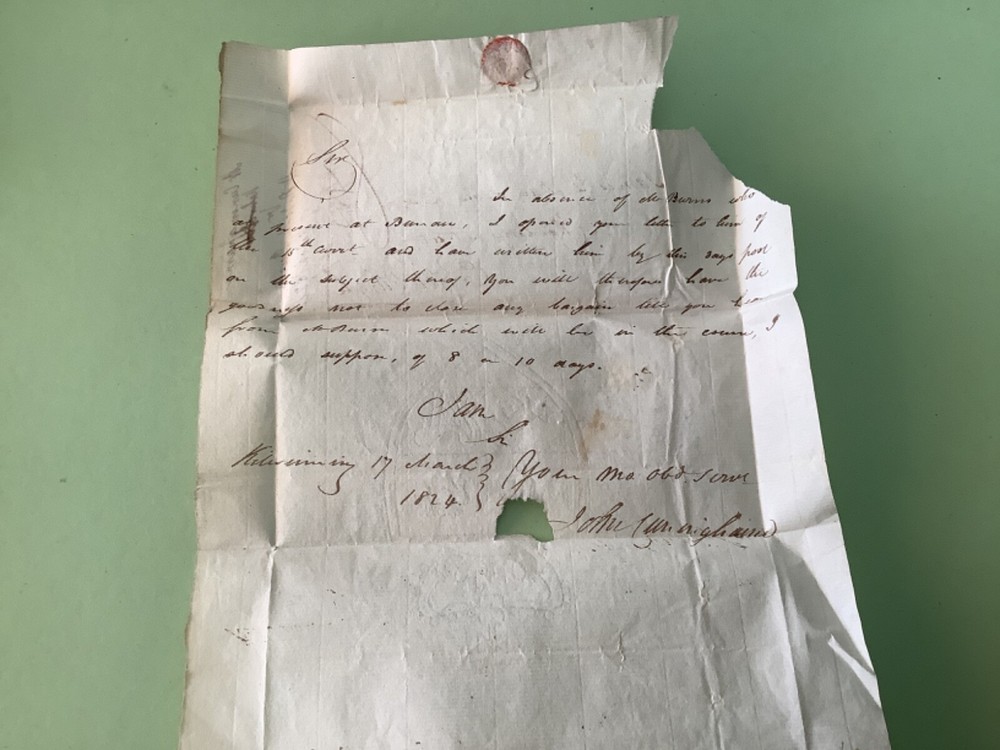 Sir
In absence of Mr Burns who
present at Bunaw, I opened your letter to him of
the 15th Court and have written him by this days post
on the subject thereof, You will therefore have the
goodness not to close any bargain till you hear
from Mr Burns which will be in the course, I
should suppose, of 8 or 10 days.
I am
Sir
Kilwinning 17 March } Your mo. Obd. Servt
1824. }
John Cuninghame